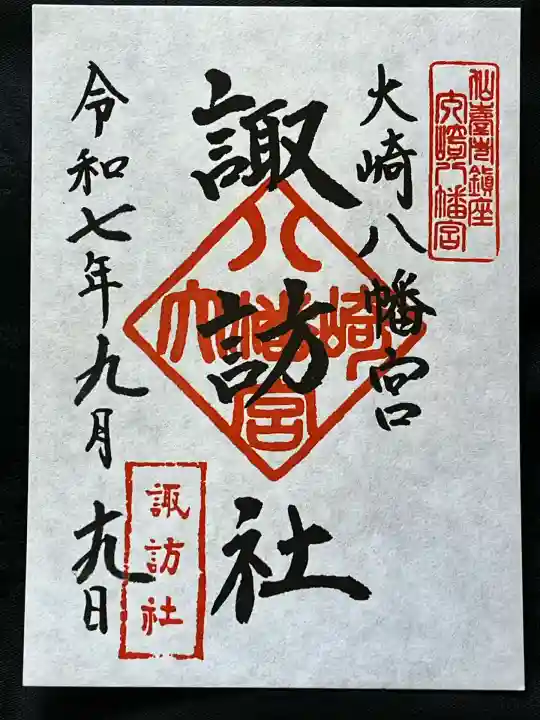 仙臺市鎮座
大崎八幡宮
大崎八幡宮
諏訪社
八幡宮
大崎
諏訪社
令和七年九月十九日